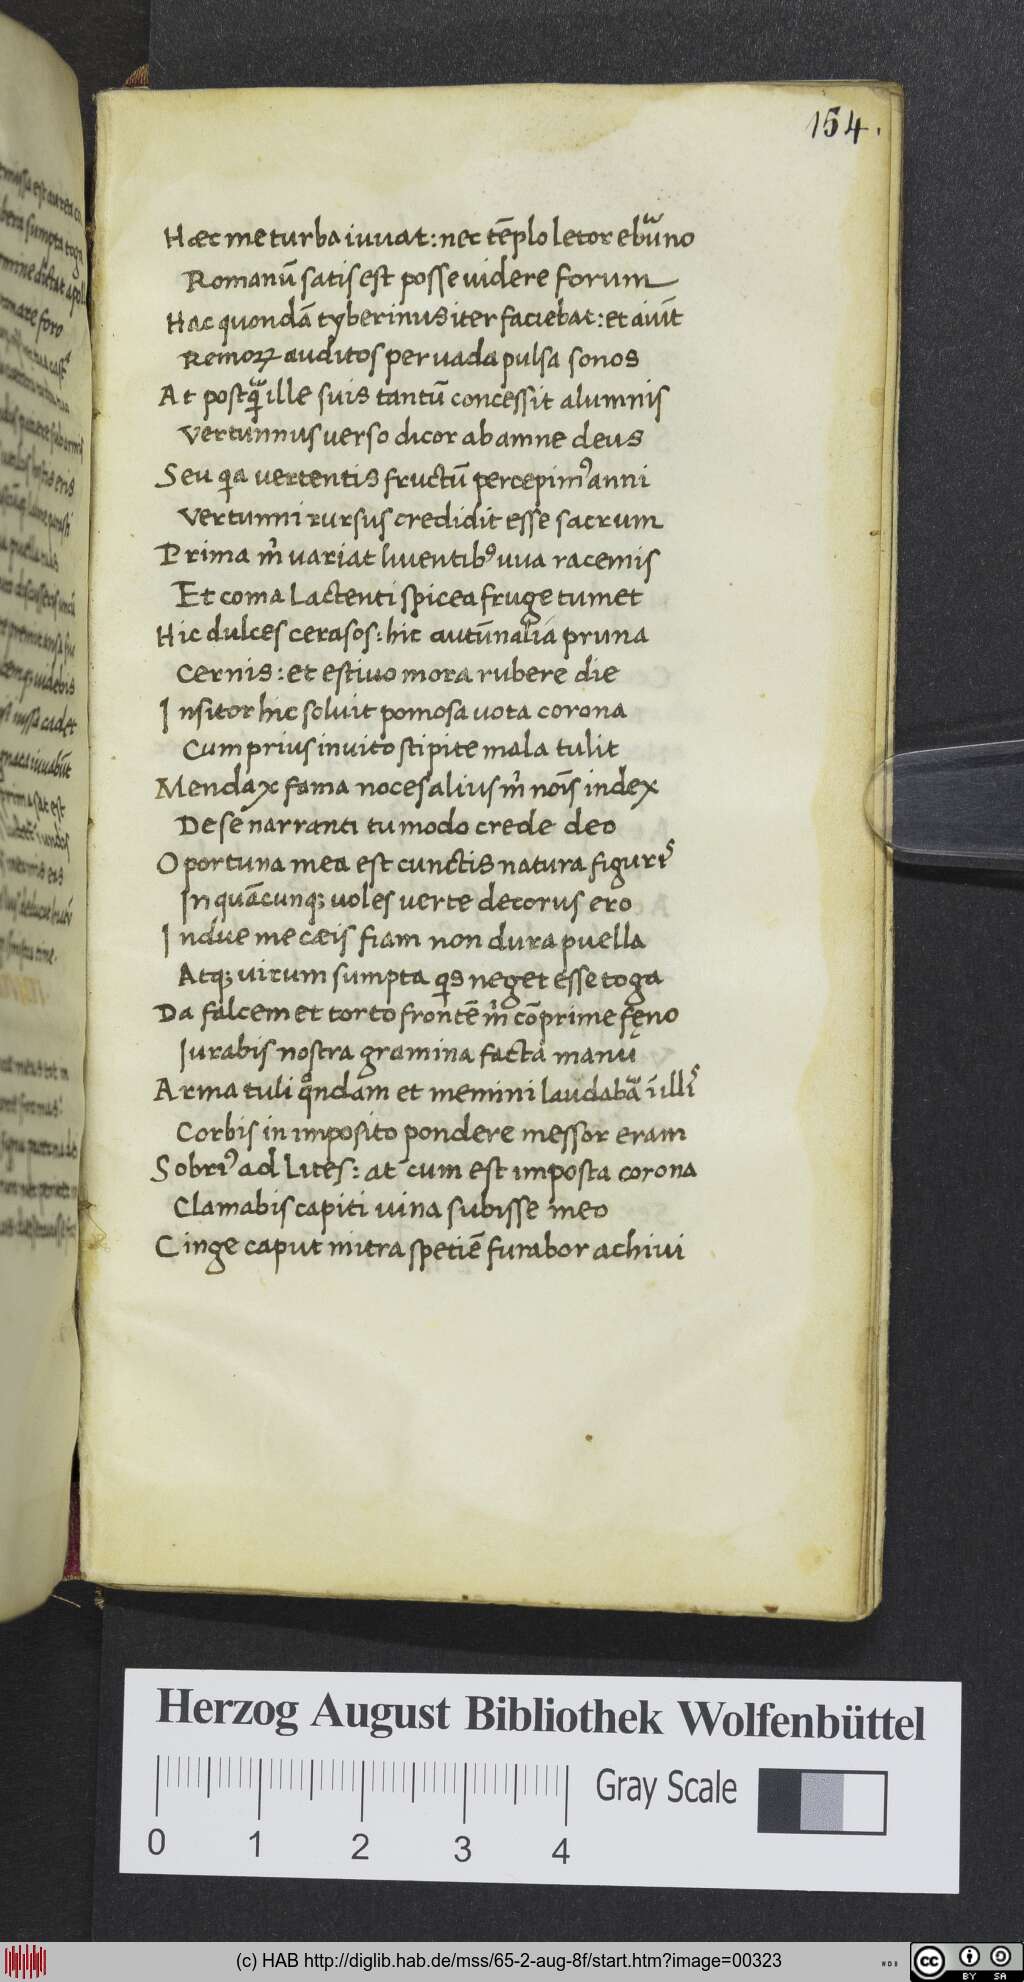 154.
Hæc me turba iuuat: nec tēplo letor eburno
Romanū satis est posse uidere forum
Hac quondā tyberinus iter faciebat: et aiūt
Remoꝝ auditos per uada pulsa sonos
At postꝗ ille suis tantū concessit alumnis
Vertunnus uerso dicor ab amne deus
Seu ꝗa vertentis fructū percepimꝰ anni
Vertunni rursus credidit esse sacrum
Prima m̉ uariat liuentibꝰ uua racemis
Et coma lactenti spicea fruge tumet
Hic dulces cerasos: hic autūnalia pruna
Cernis: et estiuo mora rubere die
Insitor hic soluit pomosa uota corona
Cum prius inuito stipite mala tulit
Mendax fama noces alius m̉ noīs index
De se narranti tu modo crede deo
Oportuna mea est cunctis natura figuris
In quācunqꝫ uoles uerte decorus ero
Indue me cæis fiam non dura puella
Atqꝫ uirum sumpta ꝗs neget esse toga
Da falcem et torto frontē m̉ cōprime fęno
Iurabis nostra gramina facta manu
Arma tuli qͦndam et memini laudabar ī illis
Corbis in imposito pondere messor eram
Sobriꝰ ad lites: at cum est imposta corona
Clamabis capiti uina subisse meo
Cinge caput mitra spetiē furabor achiui
Herzog August Bibliothek Wolfenbüttel
0 1 2 3 4 Gray Scale
(c) HAB http://diglib.hab.de/mss/65-2-aug-8f/start.htm?image=00323
cc BY SA